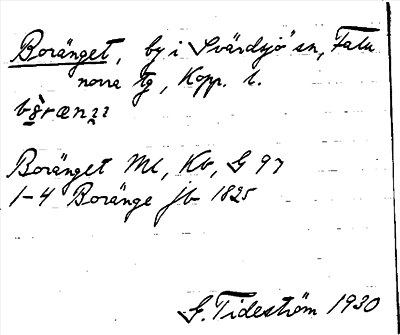 Boränget, by i Svärdsjö sn, Falu
norra tg, Kopp. l.
Boränget Ml, Kv, G 97
1-4 Boränge Jb 1825
G. Tideström 1930